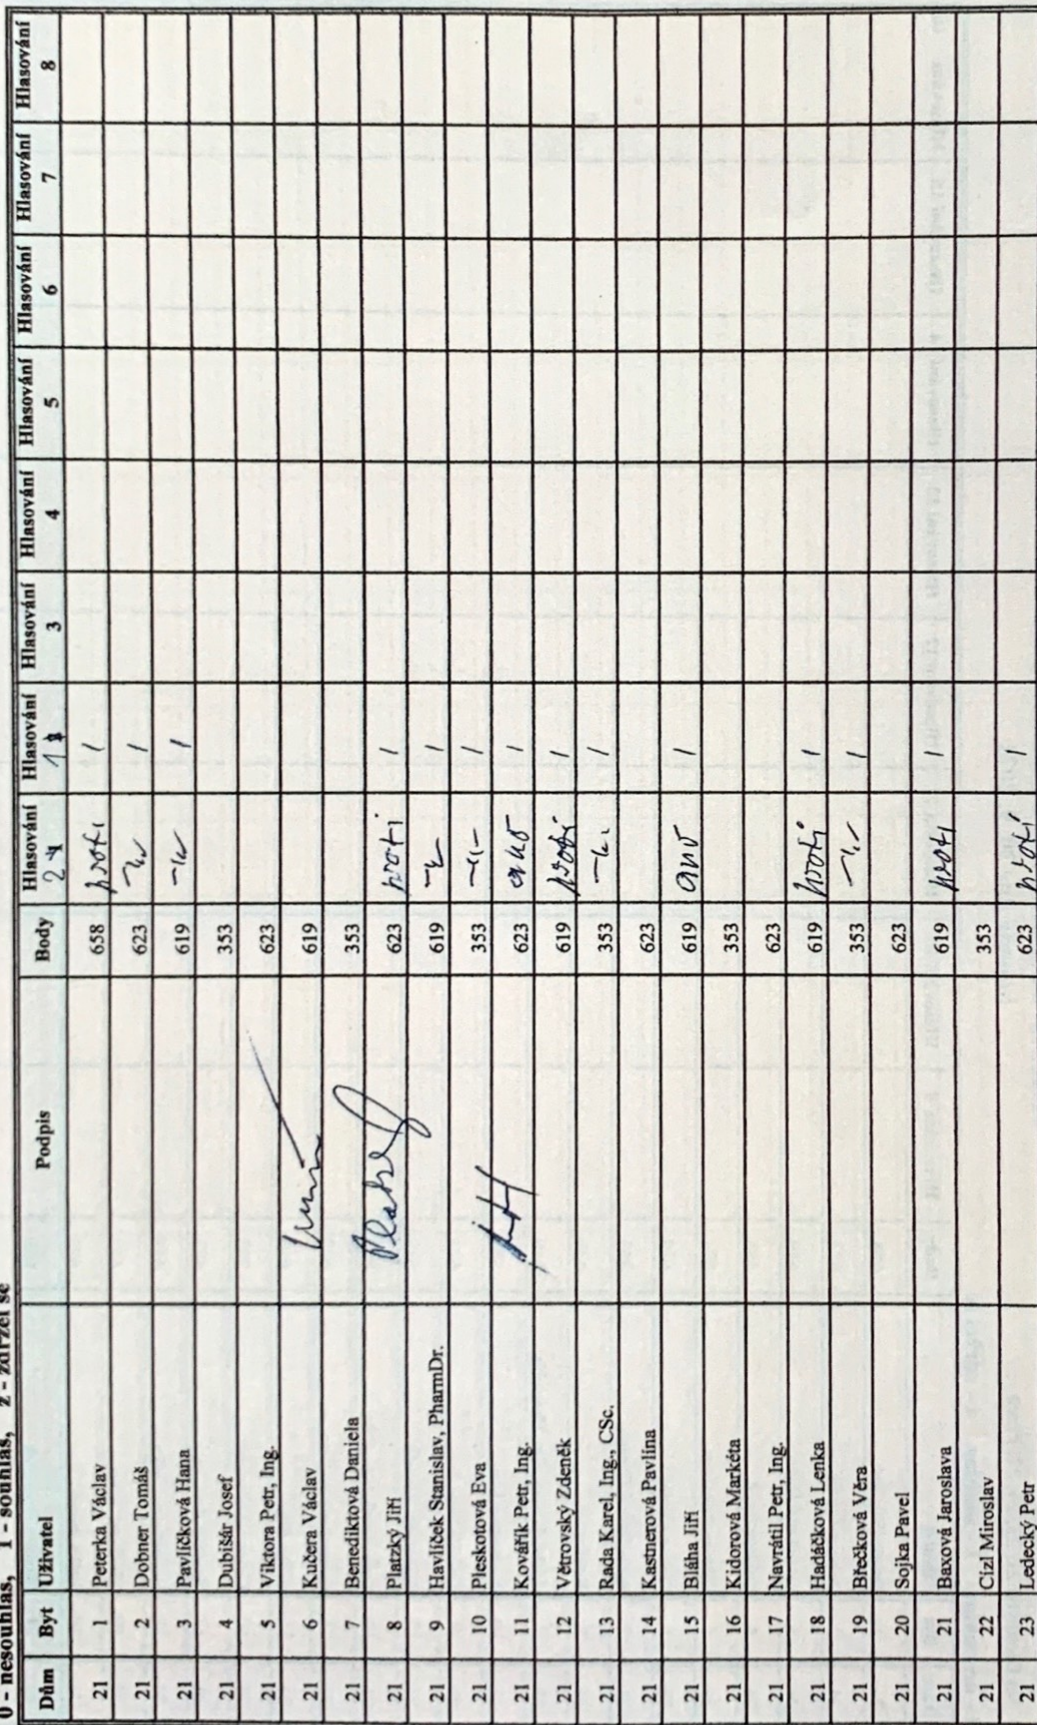 0 - nesouhlas, 1 - souhlas, z - zdržel se
Dům Byt Uživatel Podpis Body Hlasování 2 Hlasování 1 Hlasování 3 Hlasování 4 Hlasování 5 Hlasování 6 Hlasování 7 Hlasování 8
21 1 Peterka Václav 658 proti 1
21 2 Dobner Tomáš 623 -"- 1
21 3 Pavlíčková Hana 619 -"- 1
21 4 Dubišár Josef 353
21 5 Viktora Petr, Ing. 623
21 6 Kučera Václav 619
21 7 Benediktová Daniela 353
21 8 Platzký Jiří 623 proti 1
21 9 Havlíček Stanislav, PharmDr. 619 -"- 1
21 10 Pleskotová Eva 353 -"- 1
21 11 Kovářík Petr, Ing. 623 ano 1
21 12 Větrovský Zdeněk 619 proti 1
21 13 Rada Karel, Ing., CSc. 353 -"- 1
21 14 Kastnerová Pavlína 623
21 15 Bláha Jiří 619 ano 1
21 16 Kidorová Markéta 353
21 17 Navrátil Petr, Ing. 623
21 18 Hadáčková Lenka 619 proti 1
21 19 Břečková Věra 353 -"- 1
21 20 Sojka Pavel 623
21 21 Baxová Jaroslava 619 proti 1
21 22 Cizl Miroslav 353
21 23 Ledecký Petr 623 proti 1